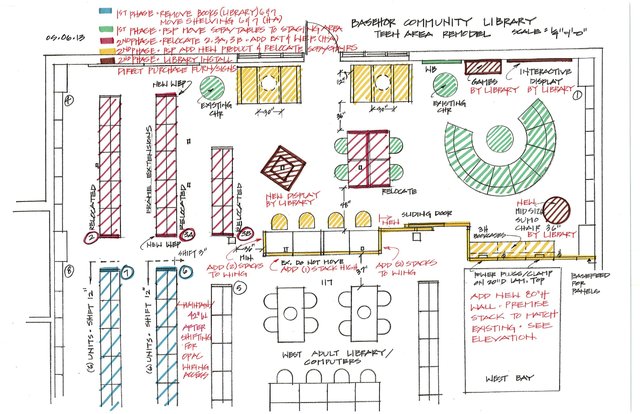 05.06.13
1ST PHASE - REMOVE BOOKS (LIBRARY) 6 & 7
MOVE SHELVING 6 & 7 (HA)
1ST PHASE - P&P MOVE SETAY TABLES TO STAGING AREA
2ND PHASE - RELOCATE 2, 3A, 3B - ADD EXT & WEP (HA)
2ND PHASE - P&P ADD NEW PRODUCT & RELOCATE
2ND PHASE - LIBRARY INSTALL
DIRECT PURCHASE FURNISHINGS
BASEHOR COMMUNITY LIBRARY
TEEN AREA REMODEL
SCALE = 1/4" = 1'-0"
NEW WEP
EXISTING
CHR
30"
30"
WB
EXISTING
CHR
GAMES
BY LIBRARY
INTERACTIVE
DISPLAY
BY LIBRARY
4
1
RELOCATED
FRAME EXTENSIONS
RELOCATED
RELOCATED
36"
NEW DISPLAY
BY LIBRARY
RELOCATE
48"
NEW
MIDSIZE
SUMO
CHAIR 36"
BY LIBRARY
2
3A
3B
NEW WEP
SHIFT 3"
36"
MIN
NEW
SLIDING DOOR
3H
BOOKCASES
ADD (2) STACKS
TO WING
EX. DO NOT MOVE
ADD (1) STACK HIGH
ADD (2) STACKS
TO WING
37"
POWER PLUGS/CLAMP
ON 20"D LAM. TOP
BASEFEED
FOR
PANELS
8
7
6
5
(6) UNITS - SHIFT 12"
(6) UNITS - SHIFT 12"
42"W
AFTER
SHIFTING
FOR
OPAC
WIRING
ACCESS
117
WEST ADULT LIBRARY/
COMPUTERS
ADD NEW 80"H
WALL - PREMISE
STACK TO MATCH
EXISTING - SEE
ELEVATION
WEST BAY